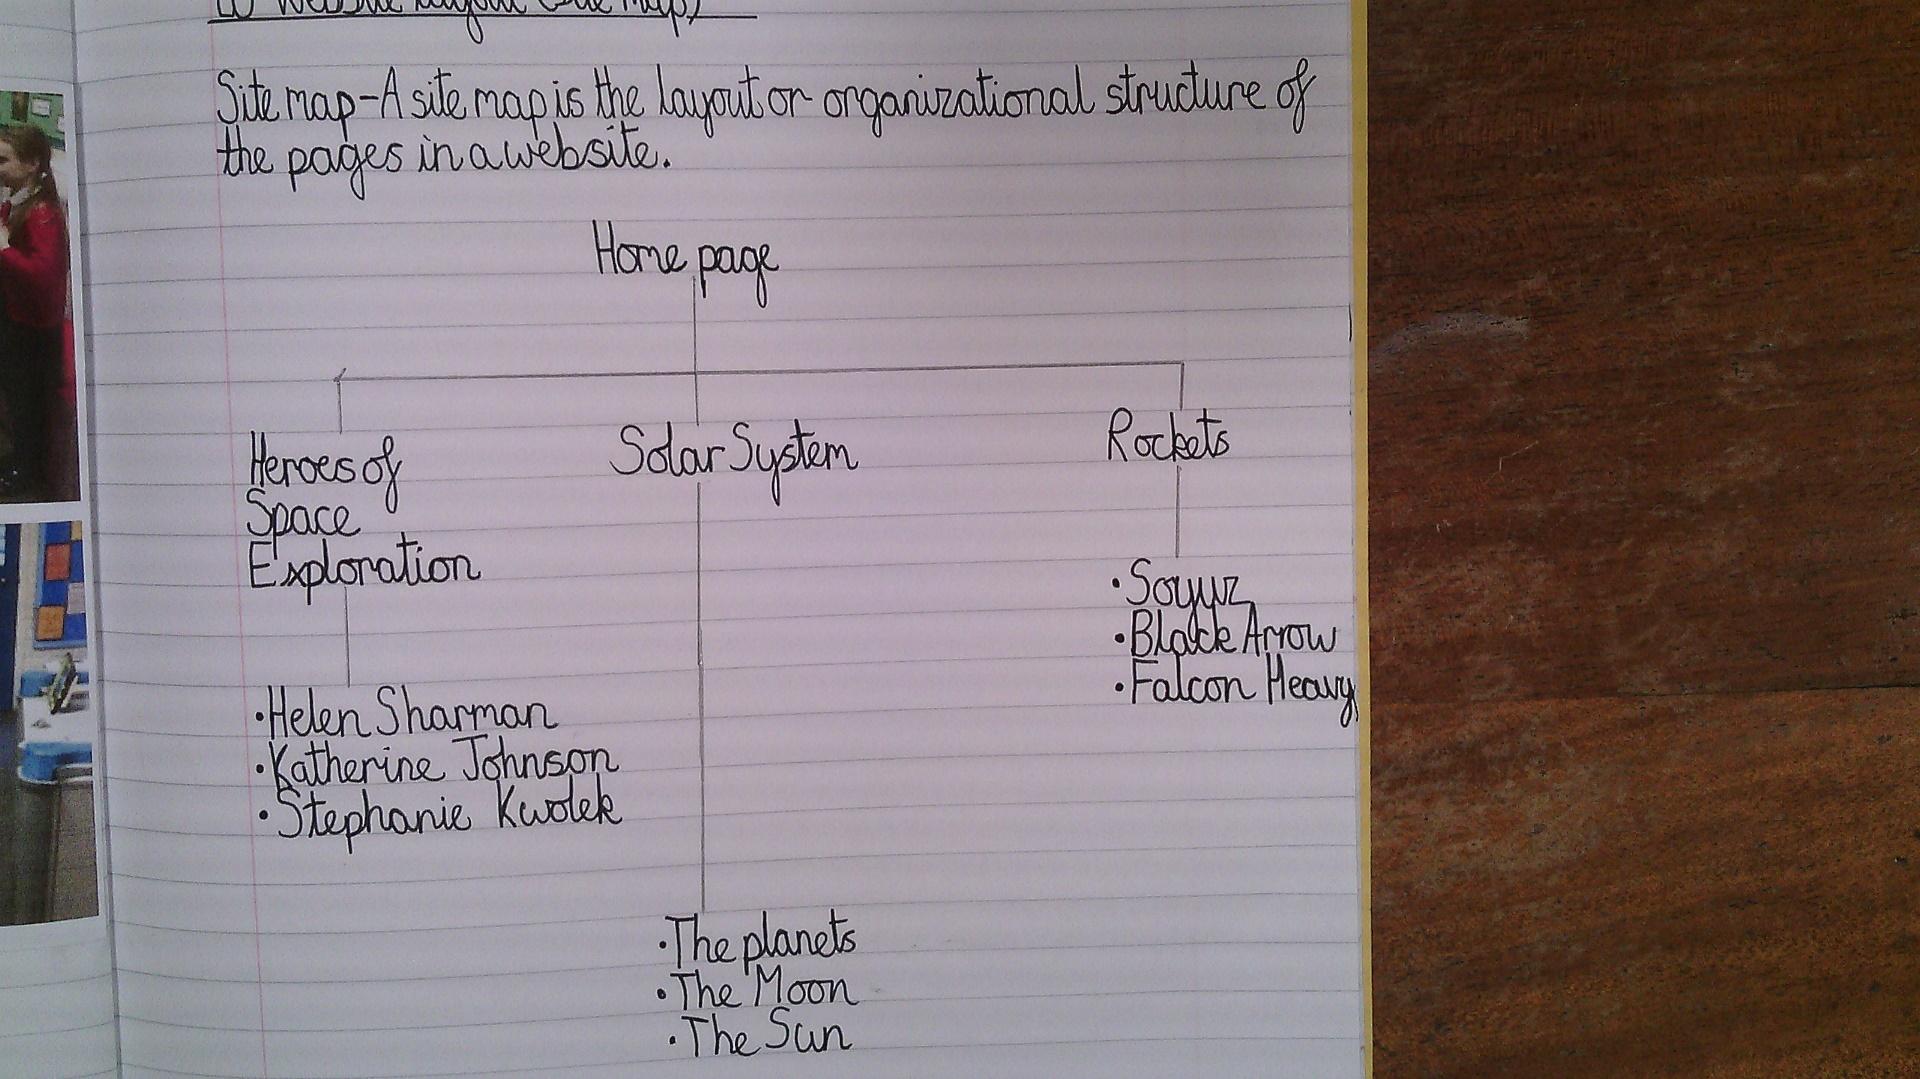 LO Website Layout (Site Map)
Site map-A site map is the layout or organizational structure of
the pages in a website.
Home page
Heroes of
Space
Exploration
Solar System
Rockets
•Soyuz
•Black Arrow
•Falcon Heavy
•Helen Sharman
•Katherine Johnson
•Stephanie Kwolek
•The planets
•The Moon
•The Sun